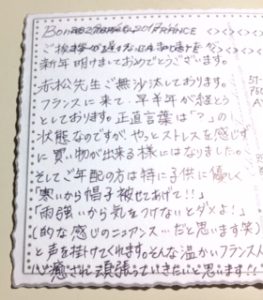 FRANCE
ご挨拶が遅れ
新年明けましておめでとうございます。
赤松先生ご無沙汰しております。
フランスに来て、早半年が経とう
としております。正直言葉は「?」の
状態なのですが、やっとストレスを感じず
に買い物が出来る様にはなりました。
そしてご年配の方は特に子供に優しく
「寒いから帽子被せてあげて!!」
「雨強いから気をつけないとダメよ!」
(的な感じのニュアンス…だと思います笑)
と声を掛けてくれます。そんな温かいフランス人
に癒され頑張っていきたいと思います!!